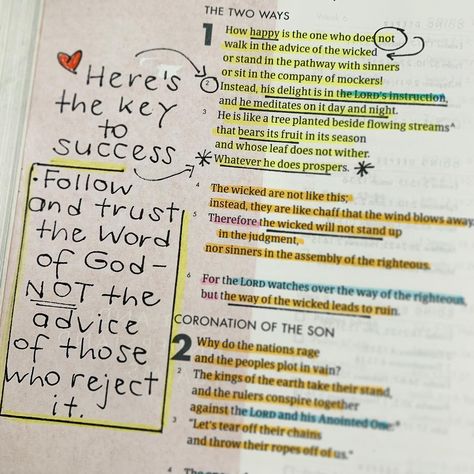 Here's
the key
to
success
• Follow
and trust
the Word
of God-
NOT the
advice
of those
who reject
it.
THE TWO WAYS
1 How happy is the one who does not
walk in the advice of the wicked
or stand in the pathway with sinners
or sit in the company of mockers!
2 Instead, his delight is in the LORD's instruction,
and he meditates on it day and night.
3 He is like a tree planted beside flowing streams^
that bears its fruit in its season
and whose leaf does not wither.
* Whatever he does prospers. *
4 The wicked are not like this;
instead, they are like chaff that the wind blows away.
5 Therefore the wicked will not stand up
in the judgment,
nor sinners in the assembly of the righteous.
6 For the LORD watches over the way of the righteous,
but the way of the wicked leads to ruin.
CORONATION OF THE SON
2 Why do the nations rage
and the peoples plot in vain?
2 The kings of the earth take their stand,
and the rulers conspire together
against the LORD and his Anointed One:
3 "Let's tear off their chains
and throw their ropes off of us."
4